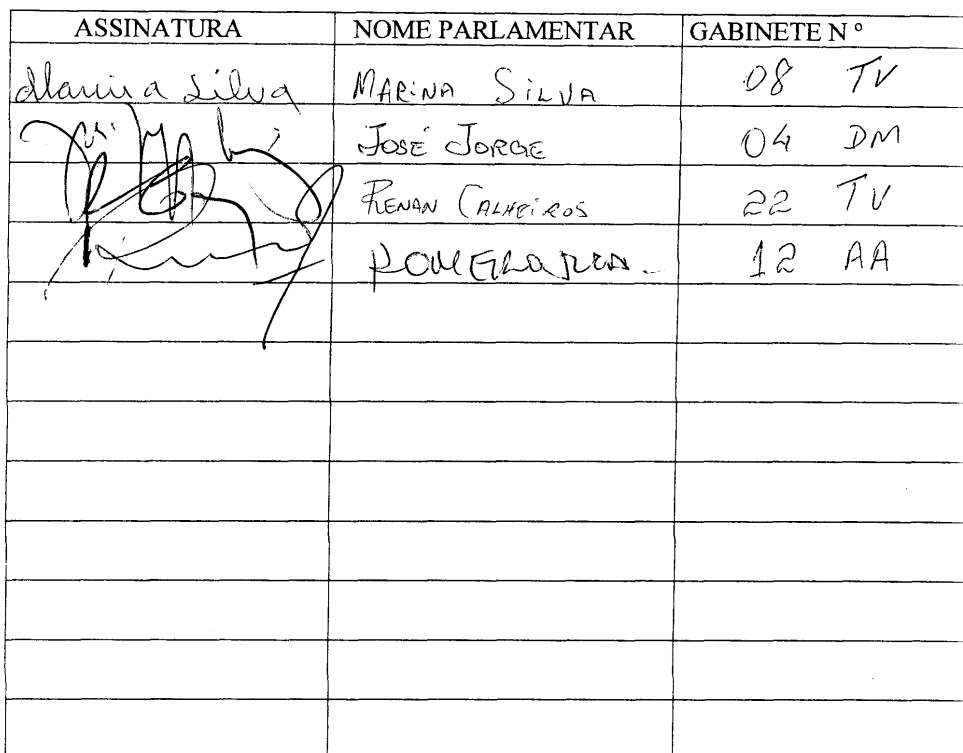 ASSINATURA NOME PARLAMENTAR GABINETE N º
Marina Silva MARINA SILVA 08 TV
JOSÉ JORGE 04 DM
RENAN CALHEIROS 22 TV
12 AA